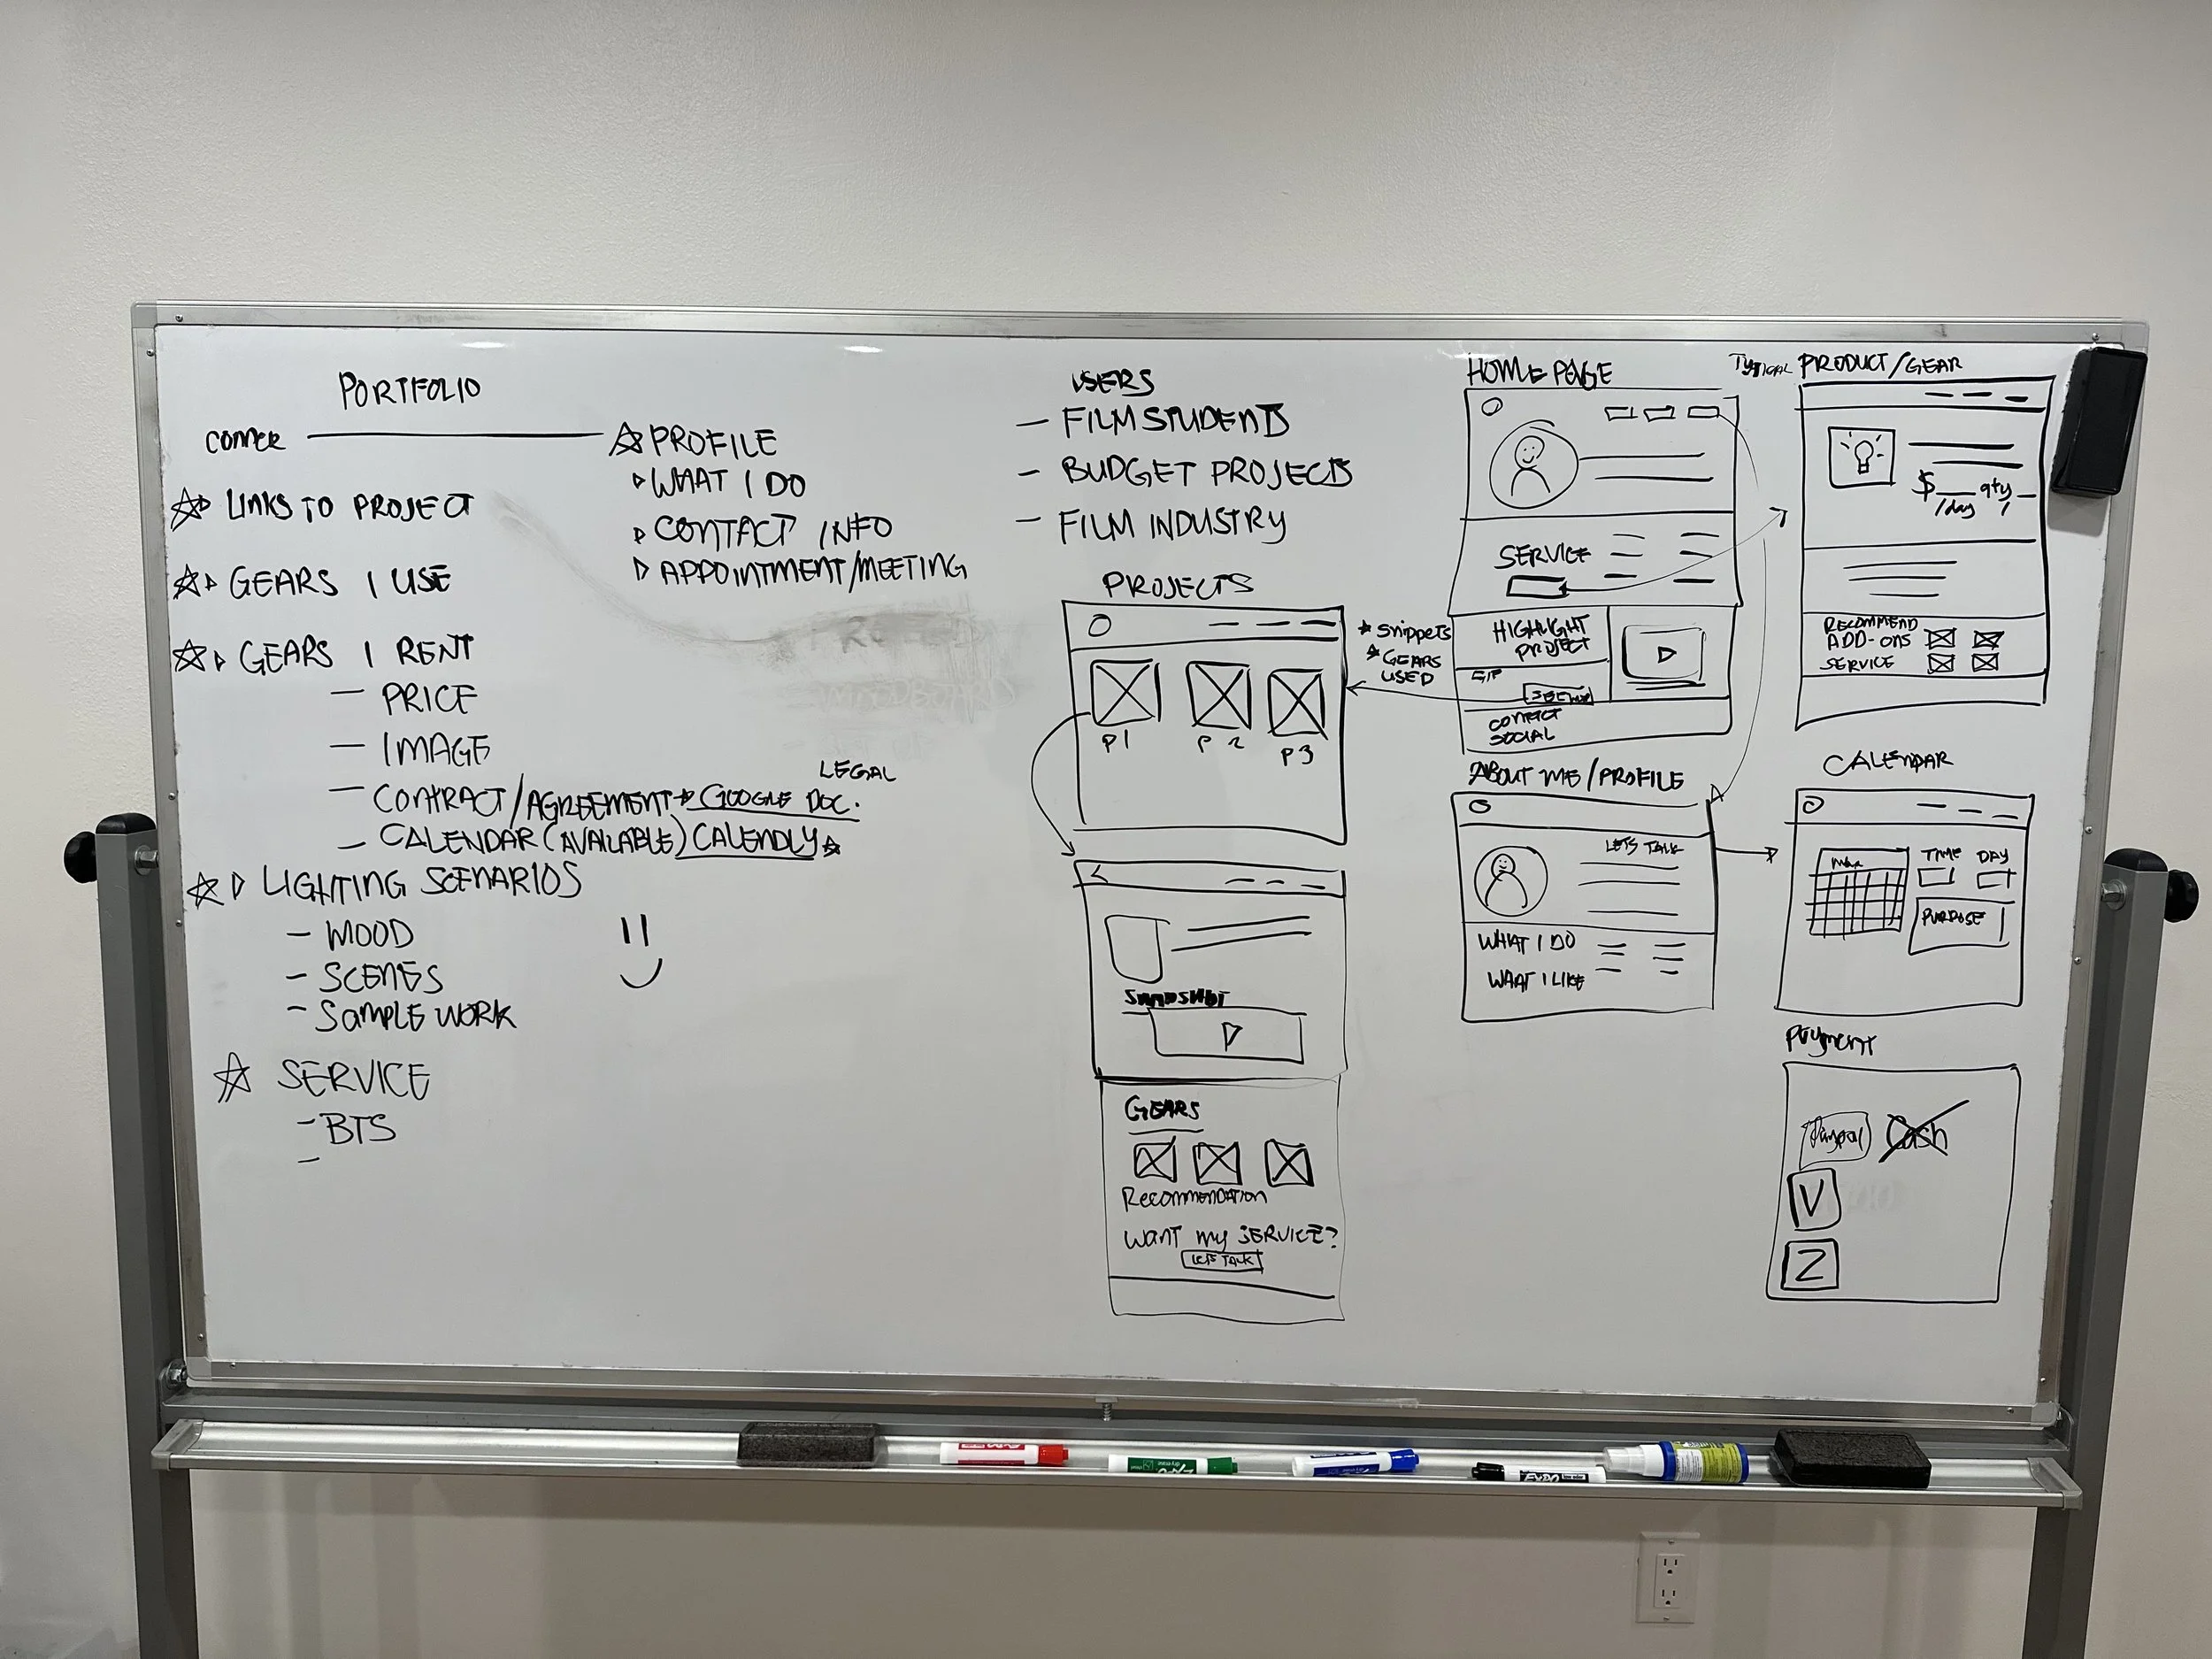 PORTFOLIO
LINKS TO PROJECT
GEARS I USE
GEARS I RENT
— PRICE
— IMAGE
LEGAL
— CONTRACT/AGREEMENT → GOOGLE DOC.
— CALENDAR (AVAILABLE) CALENDLY
LIGHTING SCENARIOS
— MOOD
— SCENES
— SAMPLE WORK
SERVICE
— BTS
—
PROFILE
WHAT I DO
CONTACT INFO
APPOINTMENT/MEETING
USERS
— FILM STUDENTS
— BUDGET PROJECTS
— FILM INDUSTRY
PROJECTS
P1 P2 P3
SNAPSHOT
GEARS
Recommendation
WANT MY SERVICE?
LETS TALK
Snippets
GEARS
USED
HOME PAGE
SERVICE
HIGHLIGHT
PROJECT
CONTACT
SOCIAL
ABOUT ME/PROFILE
LETS TALK
WHAT I DO
WHAT I LIKE
TYPICAL PRODUCT/GEAR
$__ qty_
/day
RECOMMEND
ADD-ONS
SERVICE
CALENDAR
TIME DAY
PURPOSE
Payment
Paypal Cash
V
Z
EXPO